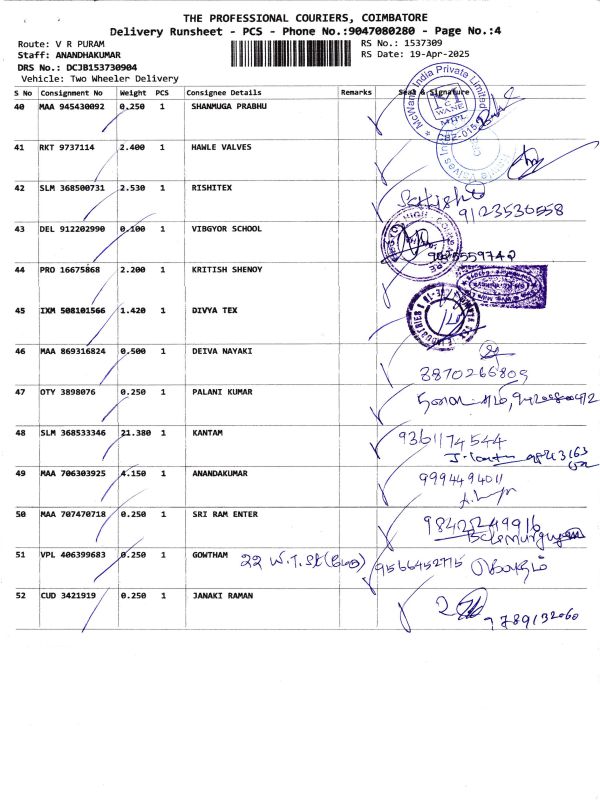 THE PROFESSIONAL COURIERS, COIMBATORE
Delivery Runsheet - PCS - Phone No.:9047080280 - Page No.:4
Route: V R PURAM
RS No.: 1537309
Staff: ANANDHAKUMAR
RS Date: 19-Apr-2025
DRS No.: DCJB153730904
Vehicle: Two Wheeler Delivery
S No Consignment No Weight PCS Consignee Details Remarks Seal & Signature
40 MAA 945430092 0.250 1 SHANMUGA PRABHU
McWane India Private Limited
MHPL
41 RKT 9737114 2.400 1 HAWLE VALVES
42 SLM 368500731 2.530 1 RISHITEX
Sathish
9123530558
43 DEL 912202990 0.100 1 VIBGYOR SCHOOL
44 PRO 16675868 2.200 1 KRITISH SHENOY
45 IXM 508101566 1.420 1 DIVYA TEX
46 MAA 869316824 0.500 1 DEIVA NAYAKI
8870266809
47 OTY 3898076 0.250 1 PALANI KUMAR
48 SLM 368533346 21.380 1 KANTAM
9361174544
49 MAA 706303925 4.150 1 ANANDAKUMAR
9994494011
50 MAA 707470718 0.250 1 SRI RAM ENTER
9842249916
51 VPL 406399683 0.250 1 GOWTHAM 22 W.T.St 9566452775
52 CUD 3421919 0.250 1 JANAKI RAMAN
9789132060